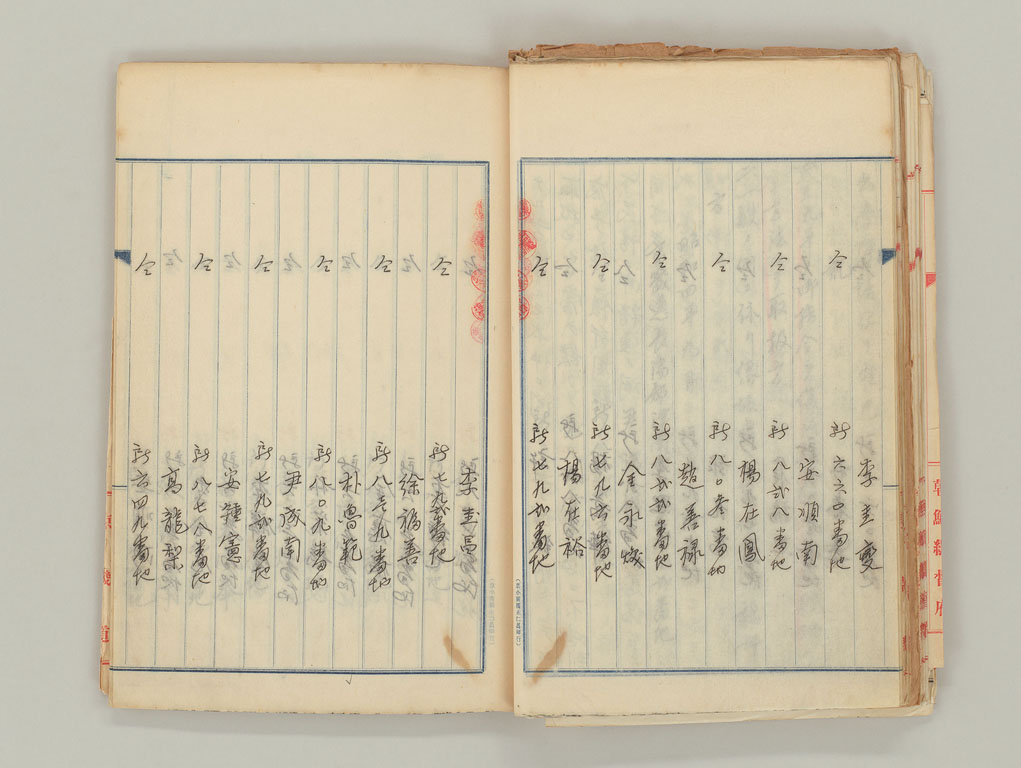 李圭夔
仝 新六六〇番地
安順南
仝 新八弐八番地
楊在鳳
仝 新八〇参番地
趙善禄
仝 新八弐弐番地
金永
仝 新七九六番地
楊在裕
仝 新七九弐番地
李圭昌
仝 新七九弐番地
徐福善
仝 新八 九番地
朴魯範
仝 新八〇九番地
尹成南
仝 新七九弐番地
安鍾憲
仝 新八七八番地
高龍
仝 新六四九番地
朝鮮總督府